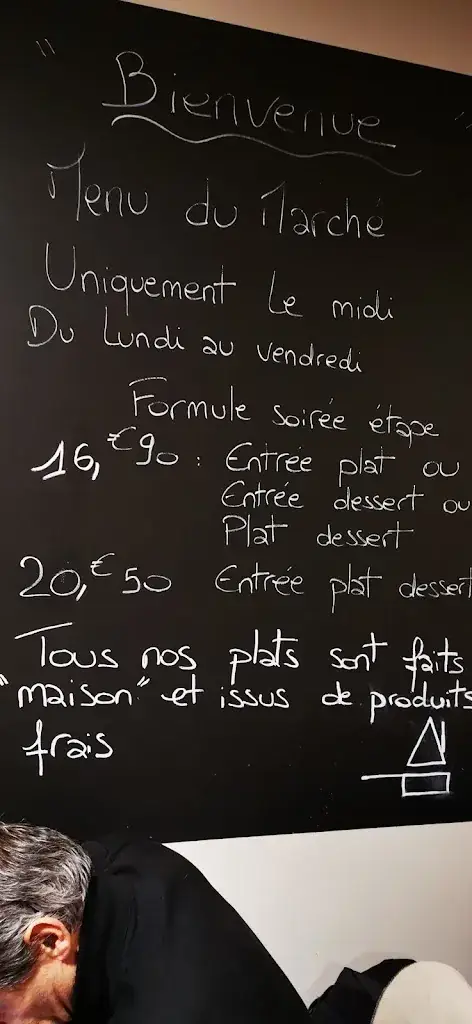 " Bienvenue "
Menu du Marché
Uniquement le midi
Du Lundi au vendredi
Formule soirée étape
16,€90 : Entrée plat ou
Entrée dessert ou
Plat dessert
20,€50 Entrée plat dessert
Tous nos plats sont faits
"maison" et issus de produits
frais